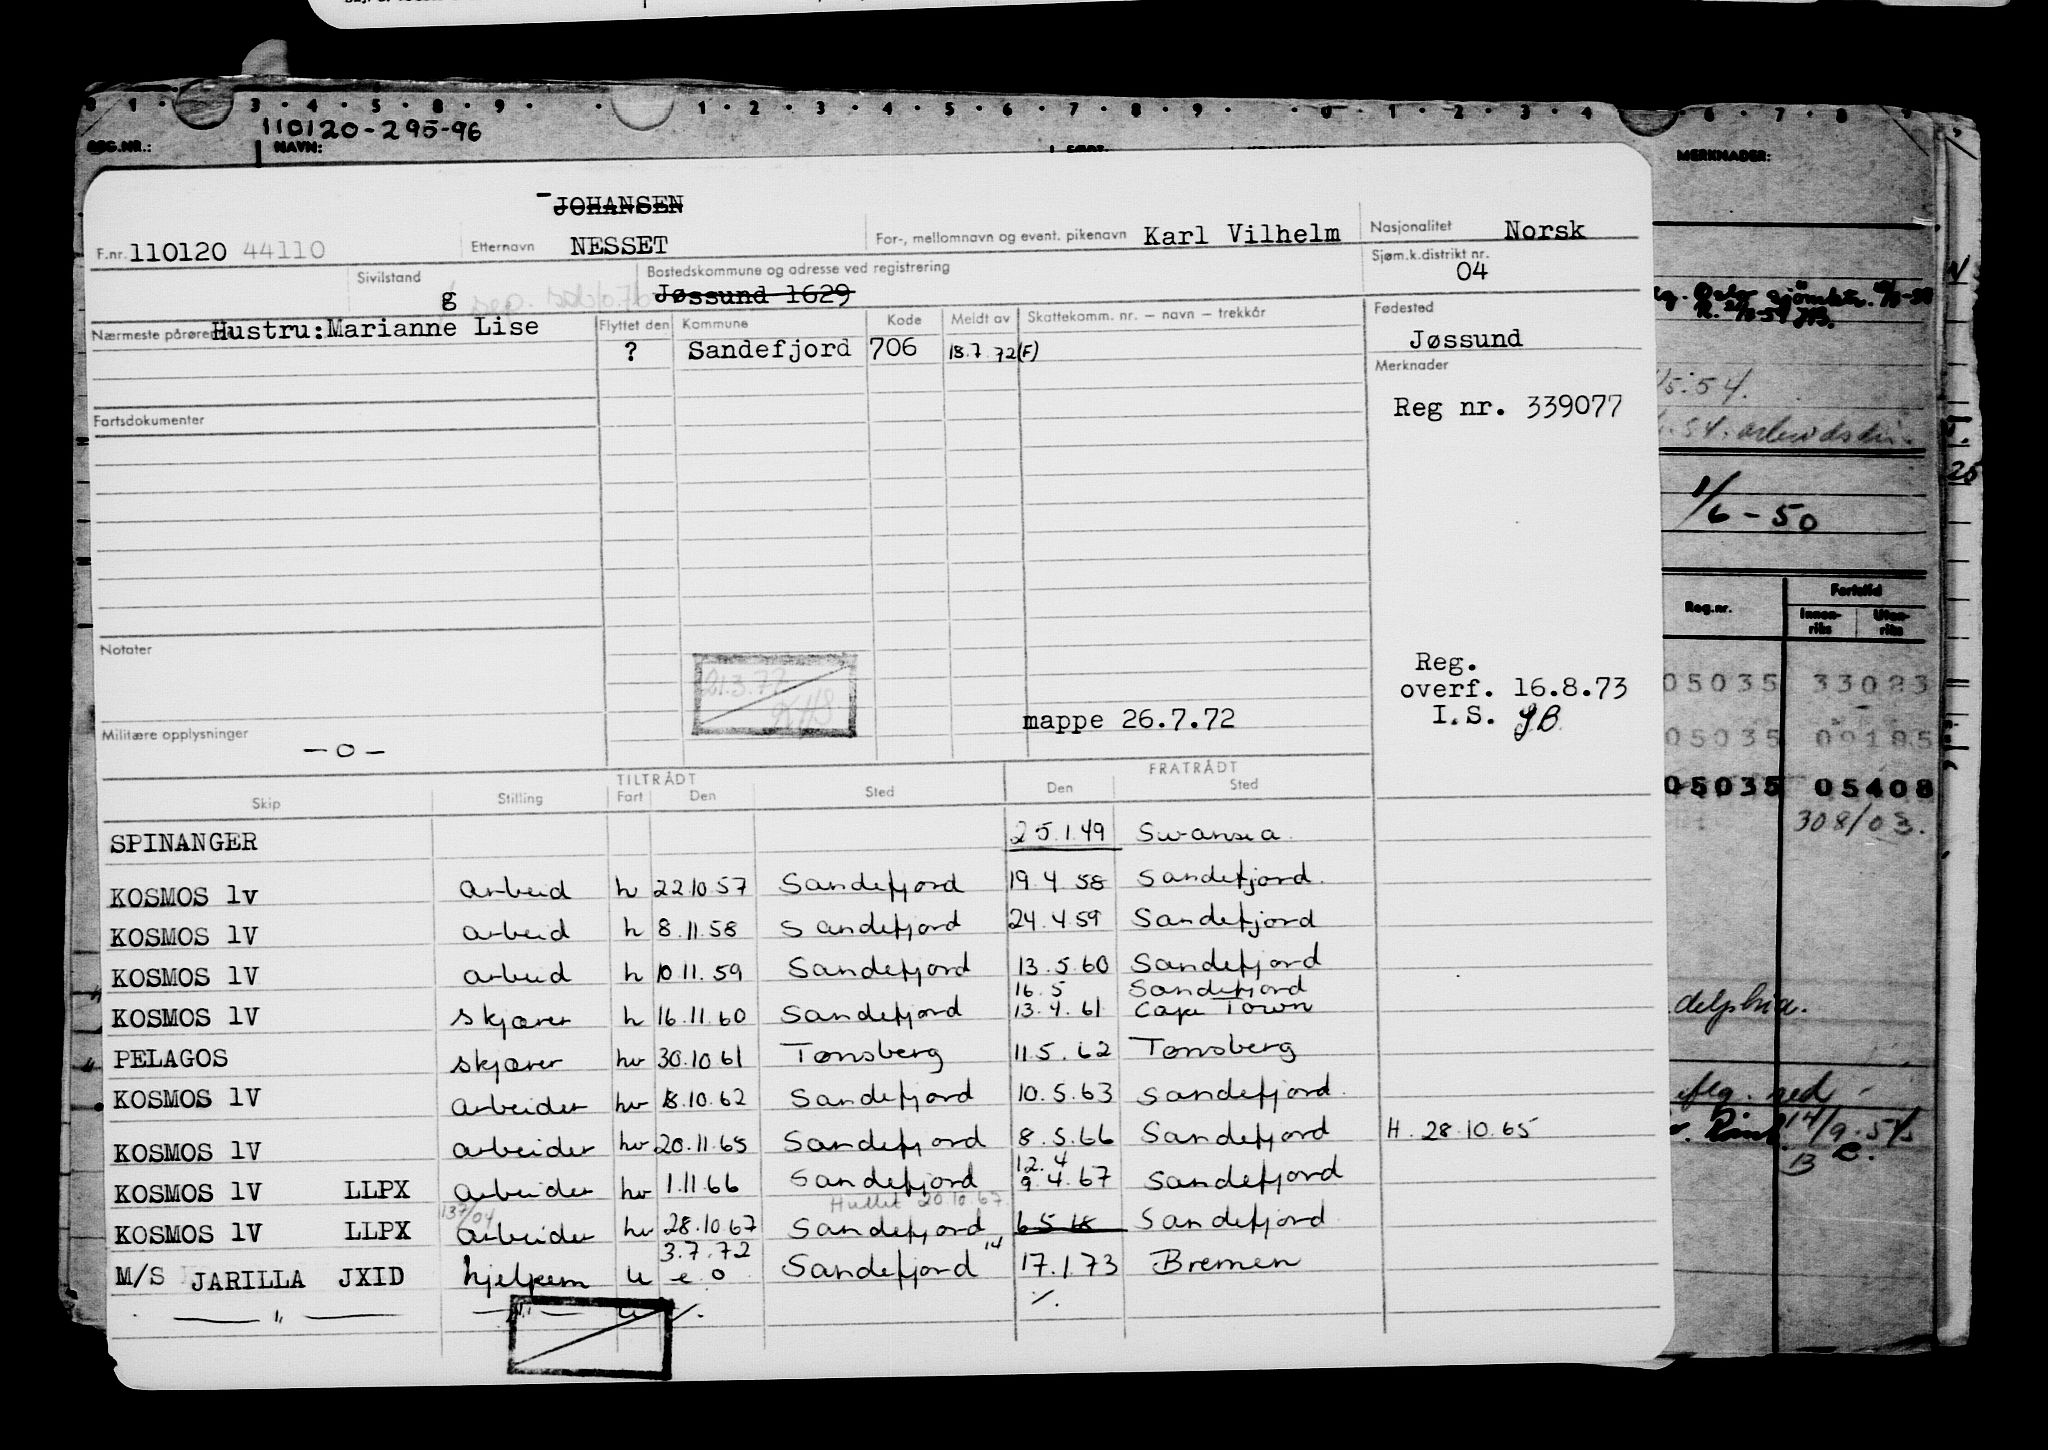 110120-295-96
REG.NR.: NAVN: MERKNADER:
JOHANSEN
F.nr. 110120 44110 Etternavn NESSET For-, mellomnavn og event. pikenavn Karl Vilhelm Nasjonalitet Norsk
Sivilstand g Bostedskommune og adresse ved registrering Jøssund 1629 Sjøm.k.distrikt nr. 04
Nærmeste pårørende Hustru: Marianne Lise Flyttet den Kommune Kode Meldt av Skattekomm. nr. – navn – trekkår Fødested
? Sandefjord 706 18.7.72(F) Jøssund
Merknader
Fartsdokumenter Reg nr. 339077
1/6-50
Reg.nr. Fartstid
Innen-riks Uten-riks
Notater Reg.
21.3.77 overf. 16.8.73
05035 33023
mappe 26.7.72 I.S. JB.
Militære opplysninger -o-
05035 09185
TILTRÅDT FRATRÅDT
Skip Stilling Fart Den Sted Den Sted
05035 05408
308/03.
SPINANGER 25.1.49 Swansea
KOSMOS lv arbeid hv 22.10.57 Sandefjord 19.4.58 Sandefjord.
KOSMOS lV arbeid h 8.11.58 Sandefjord 24.4.59 Sandefjord
KOSMOS lV arbeid h 10.11.59 Sandefjord 13.5.60 Sandefjord
16.5 Sandefjord
KOSMOS lV skjærer h 16.11.60 Sandefjord 13.4.61 Cape Town
delphia.
PELAGOS skjærer hv 30.10.61 Tønsberg 11.5.62 Tønsberg
KOSMOS lV arbeider hv 18.10.62 Sandefjord 10.5.63 Sandefjord.
KOSMOS lV arbeider hv 20.11.65 Sandefjord 8.5.66 Sandefjord H. 28.10.65
12.4
KOSMOS lV LLPX arbeider hv 1.11.66 Sandefjord 9.4.67 Sandefjord
137/04 Hullet 20.10.67.
KOSMOS lV LLPX arbeider hv 28.10.67 Sandefjord 6.5.68 Sandefjord
3.7.72 14
M/S JARILLA JXID hjelpem u e.o Sandefjord 17.1.73 Bremen
— " — — " — u %. %.